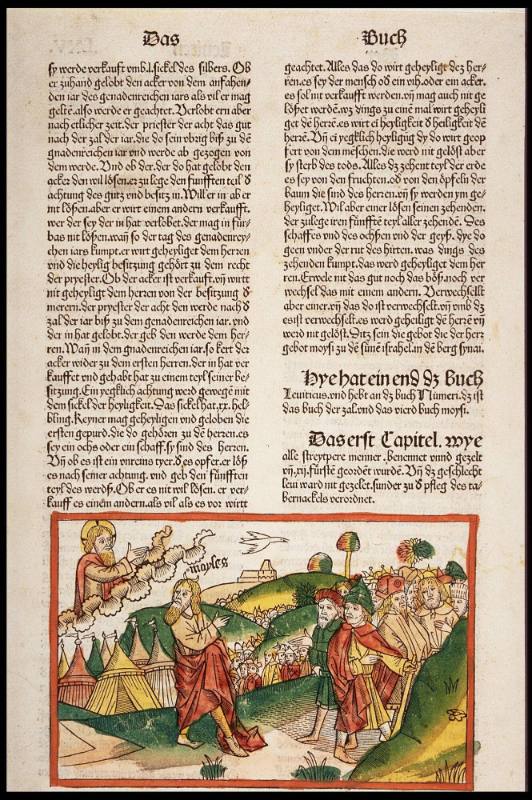 Das Buch
sy werde verkauft vmb.l.sickel des silbers. Ob
er zuhand gelobt den acker von dem anfahen/
den iar des genadenreichen iars als vil er mag
gelten also werde er geachtet. Verlobt ern aber
nach etlicher zeit. der priester der acht das gut
nach der zal der iar. die do sein vbrig biß zu dē
gnadenreichen iar vnd werde ab gezogen von
dem werde. Vnd ob der. der do hat gelobt den
acker den wil lösen. er zu lege den fünfften teil d
achtung des gutz vnd besitz in. Will er in ab er
nit lösen. aber er wirt einem andern verkaufft.
wer der sey der in hat verlobet. der mag in für/
bas nit lösen. wañ so der tag des genadenrey/
chen iars kumpt. er wirt geheyliget dem herren
vnd die heylig besitzung gehört zu dem recht
der pryester. Ob der acker ist verkauft. vñ wirtt
nit geheyligt dem herren von der besitzung d
merern. der pryester der acht den werde nach d
zal der iar biß zu dem genadenreichen iar. vnd
der in hat gelobet. der geb den werde dem her/
ren. Wañ in dem gnadenreichen iar. so kert der
acker wider zu dem ersten herren. der in hat ver
kauffet vnd gehabt hat zu einem teyl seiner be/
sitzung. Ein yegklich achtung werd gewegē mit
dem sickel der heyligkeit. Das sickel hat. xx. hel/
bling. Keyner mag geheyligen vnd geloben die
ersten gepurd. die do gehören zu dē herren. es
sey ein ochs oder ein schaff. sy sind des herren.
Vñ ob es ist ein vnreins tyer. d es opfer. er löß
es nach seiner achtung. vnd geb den fünfften
teyl des werds. Ob er es nit wil lösen. er ver/
kauff es einem andern. als vil als es vor wirtt
geachtet. Alles das do wirt geheyliget dez her/
ren. es sey der mensch od ein vih. oder ein acker.
es sol nit verkaufft werden. vñ mag auch nit ge
lößet werdē. wz dings zu einē mal wirt geheyli
get dē herrē. es wirt ei heyligkeit d heyligkeit dē
herrē. Vñ ei yegklich heyligūg dy do wirt geop
fert von dem mēschen. die wird nit gelöst aber
sy sterb des tods. Alles dz zehent teyl der erde
es sey von den fruchten. od von den öpfeln der
baum die sind des herren. vñ sy werden ym ge/
heyliget. Wil aber einer lösen seinen zehenden.
der zulege iren fünffte teyl aller zehende. Des
schaffes vnd des ochsen vnd der geyß. dye do
geen vnder der rut des hirten. was dings des
zehenden kumpt. das werd geheyliget dem her
ren. Erwele nit das gut noch das böß. noch ver
wechsel das mit einem andern. Verwechsellt
aber einer. vñ das do ist verwechselt. vñ vmb dz
es ist verwechselt. es werd geheiligt dē herrē vñ
werd nit gelöst. Ditz sein die gebot die der herr
gebot moysi zu dē sünē israhel. in dē berg synai.
Hye hat ein end dz buch
Leuiticus. vnd hebt an dz buch Numeri. dz ist
das buch der zal. vnd das vierd buch moysi.
Das erst Capitel. wye
alle streytpere menner. benennet vnnd gezelt
vñ. xij. fürstē geordēt wurdē. Vñ dz geschlecht
leui ward nit gezelet. sunder zu d pfleg des ta/
bernackels verordnet.
moyses